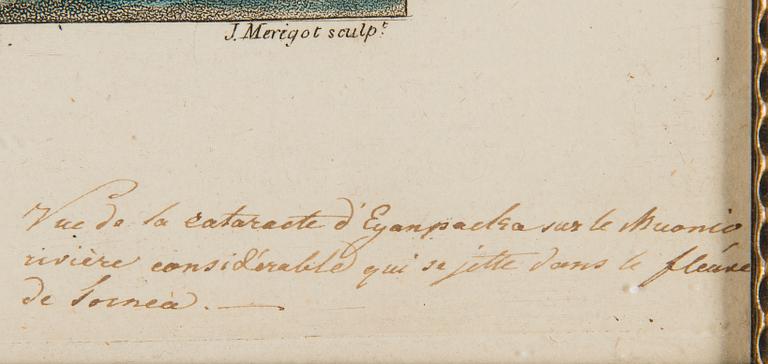 J. Merigot sculpt.
Vue de la cataracte d'Eyanpacka sur le Muonio
rivière considérable qui se jette dans le fleuve
de Tornea.